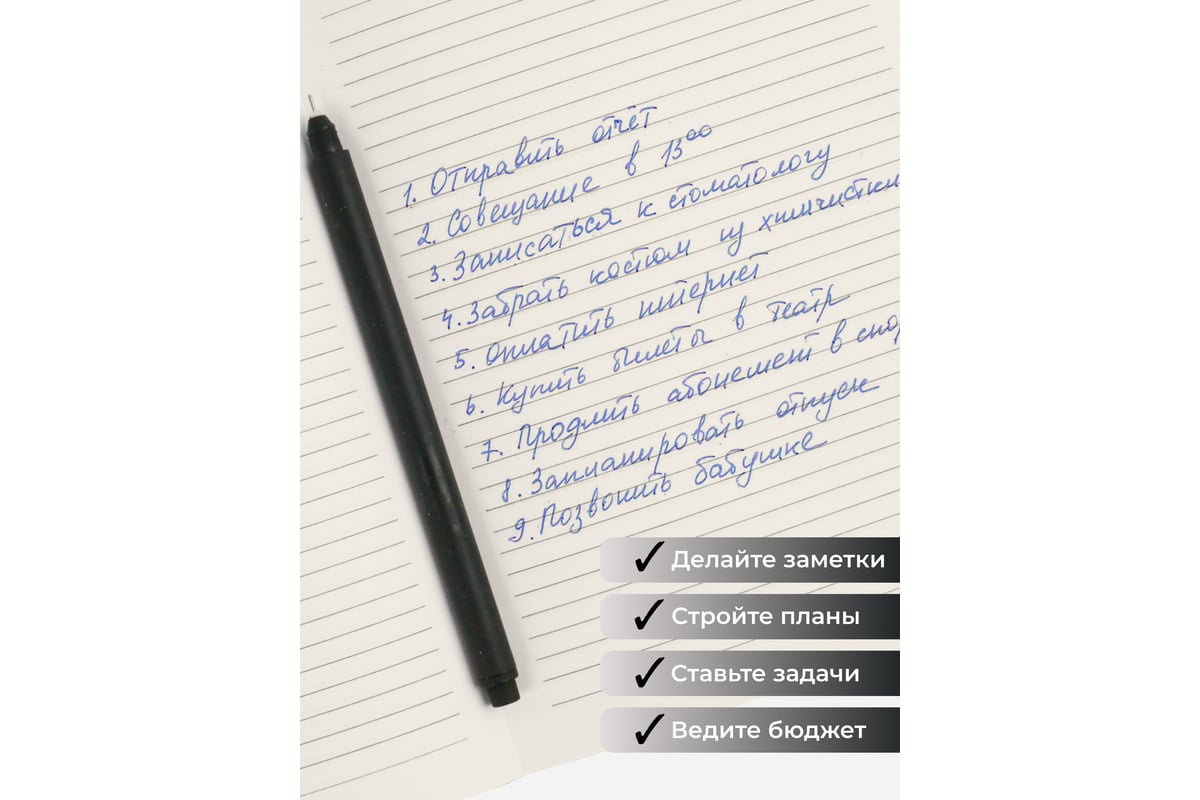 1. Отправить отчёт
2. Совещание в 13⁰⁰
3. Записаться к стоматологу
4. Забрать костюм из химчистки
5. Оплатить интернет
6. Купить билеты в театр
7. Продлить абонемент в спор
8. Запланировать отпуск
9. Позвонить бабушке
Делайте заметки
Стройте планы
Ставьте задачи
Ведите бюджет